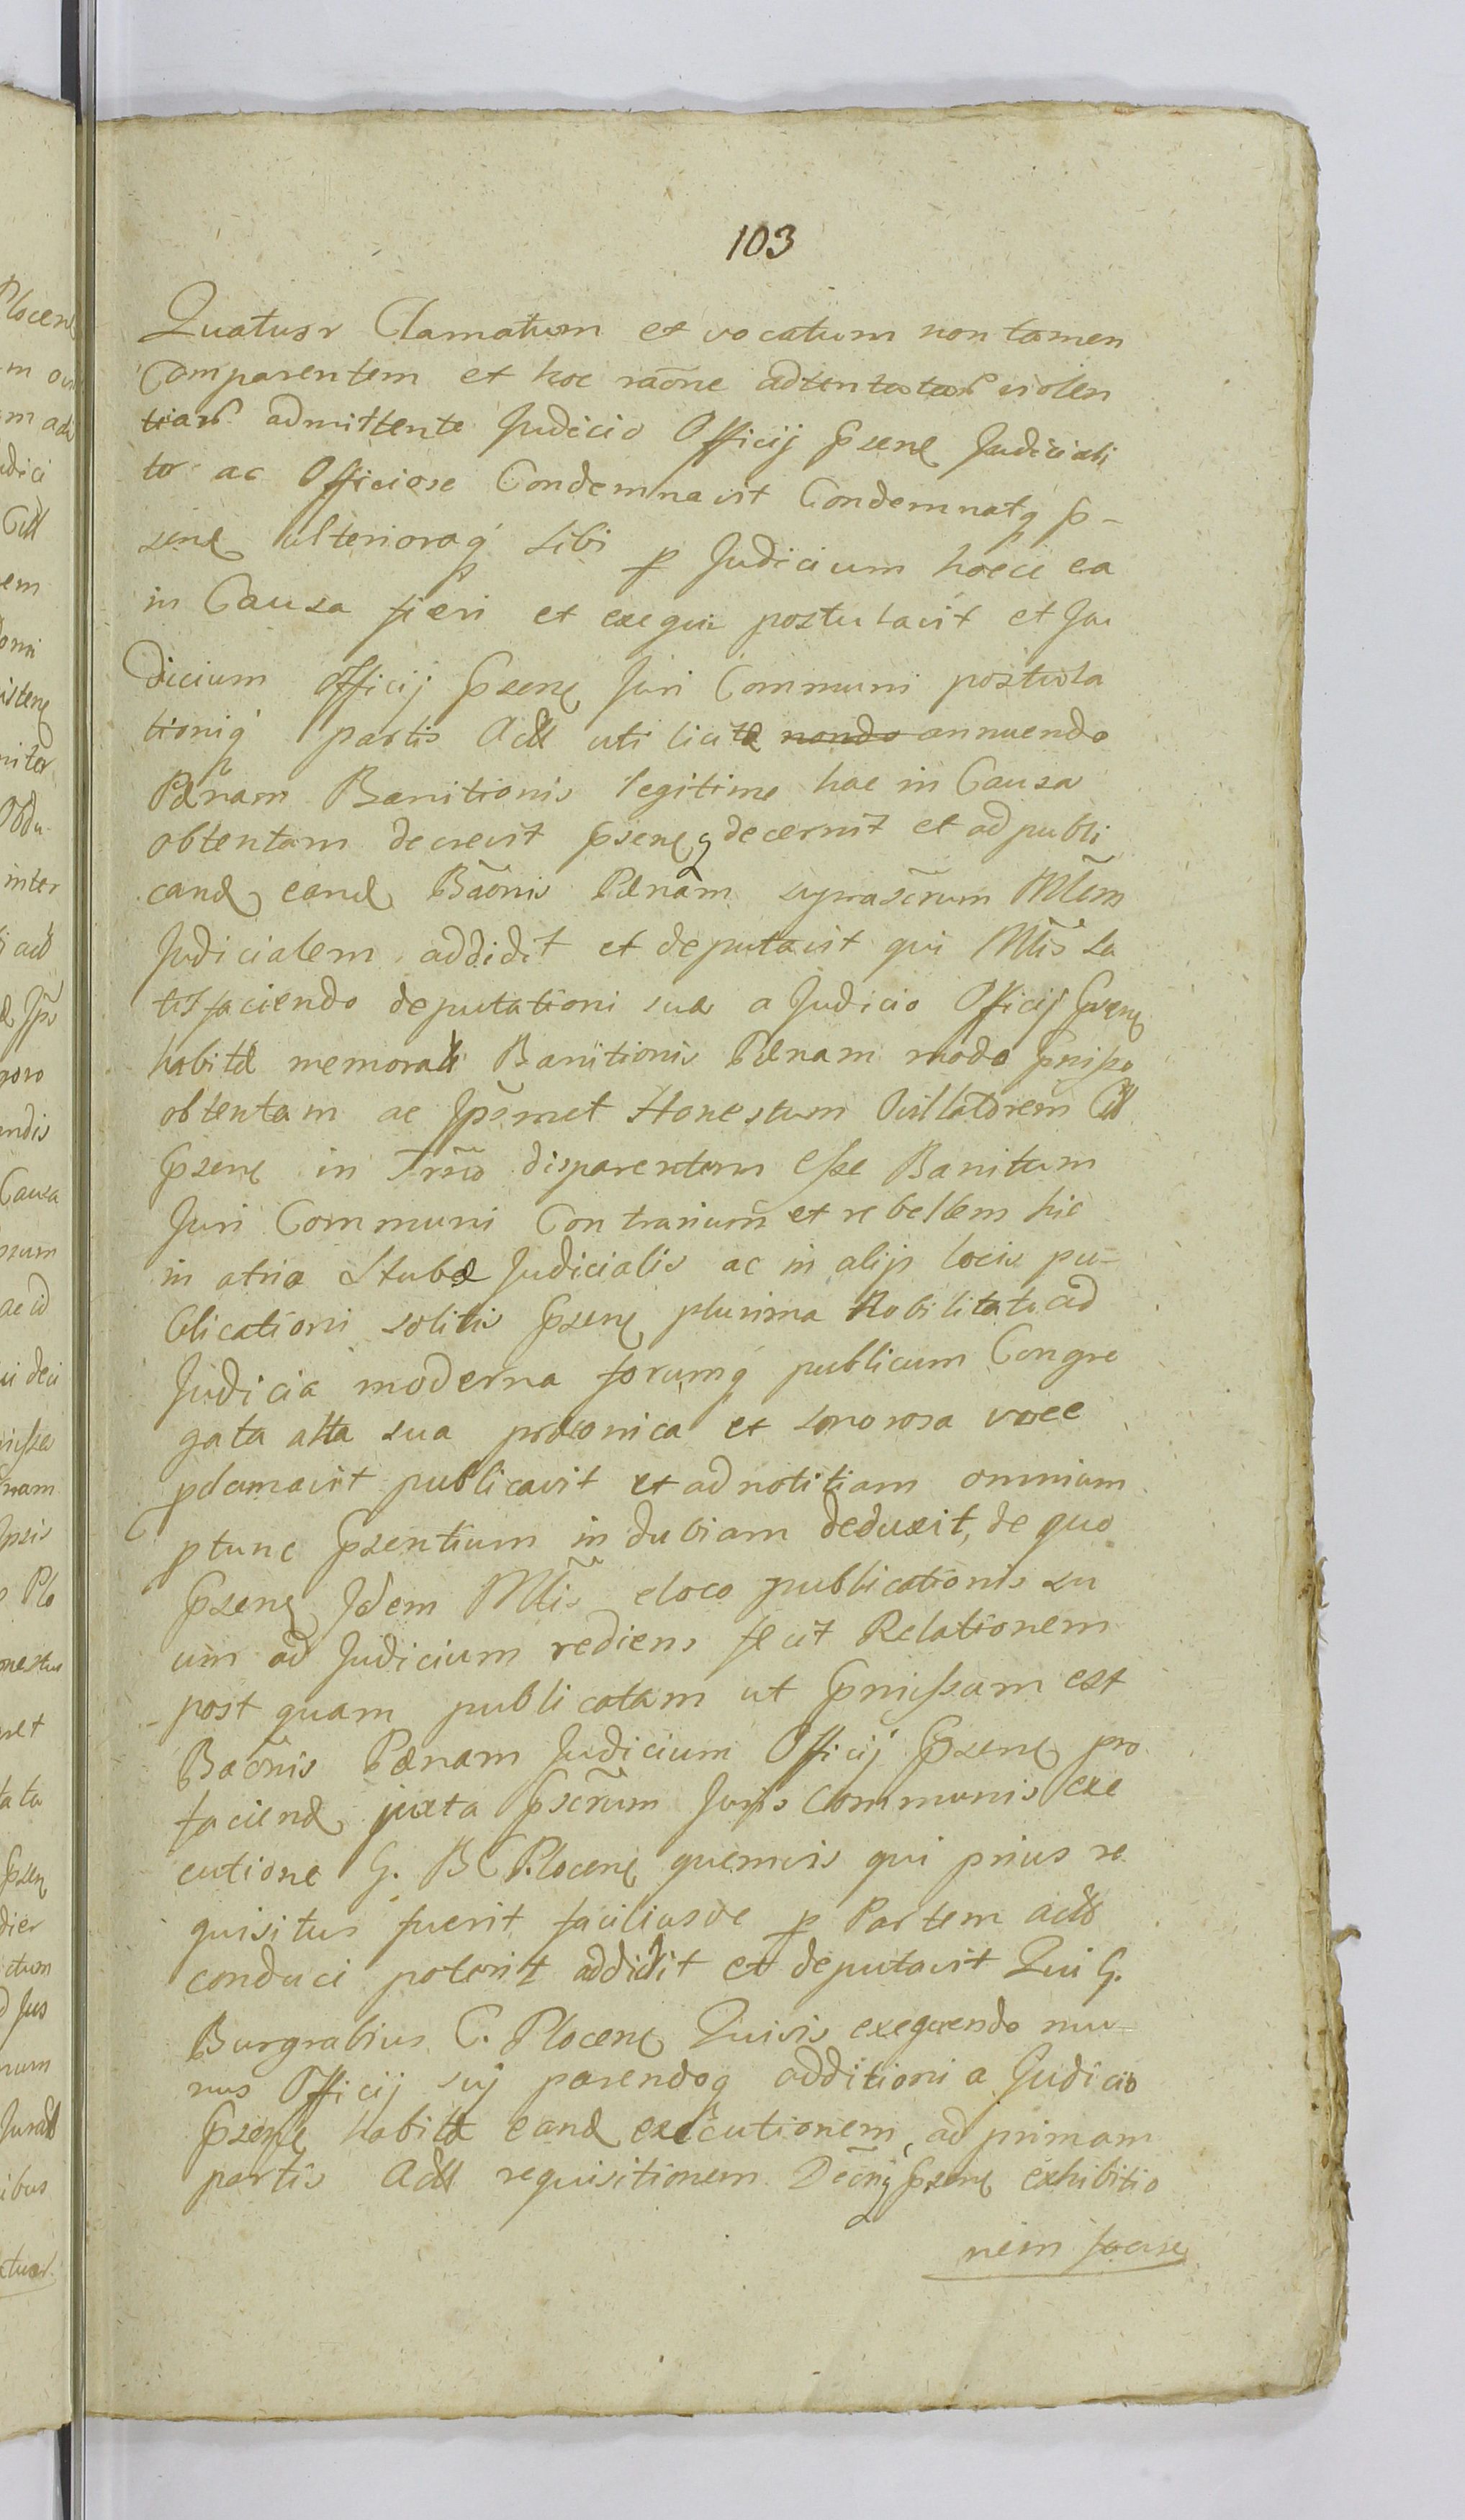 103
Quatuor Clamatum et vocatum non tamen
Comparentem et hoc raõne adtentatar violen
tiar admittente Judicio Officij Psene Judiciali
ter ac Officiose Condemnavit Condemnatq p-
sene ulterioraq sibi p Judicium hocce ea
in Causa fieri et exequi postulavit et Ju
dicium Officij Psene Juri Communi postula
tioniq partis Act uti licitæ annuendo
Pænam Banitionis legitime hac in Causa
obtentam decrevit pseneq decernit et ad publi
cand eand Bãonis Pænam suprascrum Mtlem
Judicialem addidit et deputavit qui Mtlis sa
tisfaciendo deputationi suæ a Judicio Officij Psene
habitæ memorat Banitionis Pænam modo pmisso
obtentam ac Jpsmet Honestum Cit
Psene in Trmo disparentem esse Banitum
Juri Communi Contrarium et rebellem hic
in atrio Stubæ Judicialis ac in alijs locis pu-
blicationi solitis Psene plurima Nobilitate ad
Judicia moderna forumq publicum Congre
gata alta sua præconica et sonorosa voce
pclamavit publicavit et ad notitiam omnium
ptunc Psentium indubiam deduxit, de quo
Psene Jdem Mtlis e loco publicationis su
um ad Judicium rediens fecit Relationem
post quam publicatam ut Pmissum est
Bãonis Pænam Judicium Officij Psene pro
faciend juxta Pscrum Juris Communis exe
cutione G. BC Plocene quemvis qui prius re
quisitus fuerit faciliusve p Partem act
conduci poterit addidit et deputavit Qui G.
Burgrabius C. Plocene Quivis exequendo mu-
nus Officij suj parendoq additioni a Judicio
Psene habitæ eand executionem, ad primam
partis Act requisitionem Psene exhibitio
nem